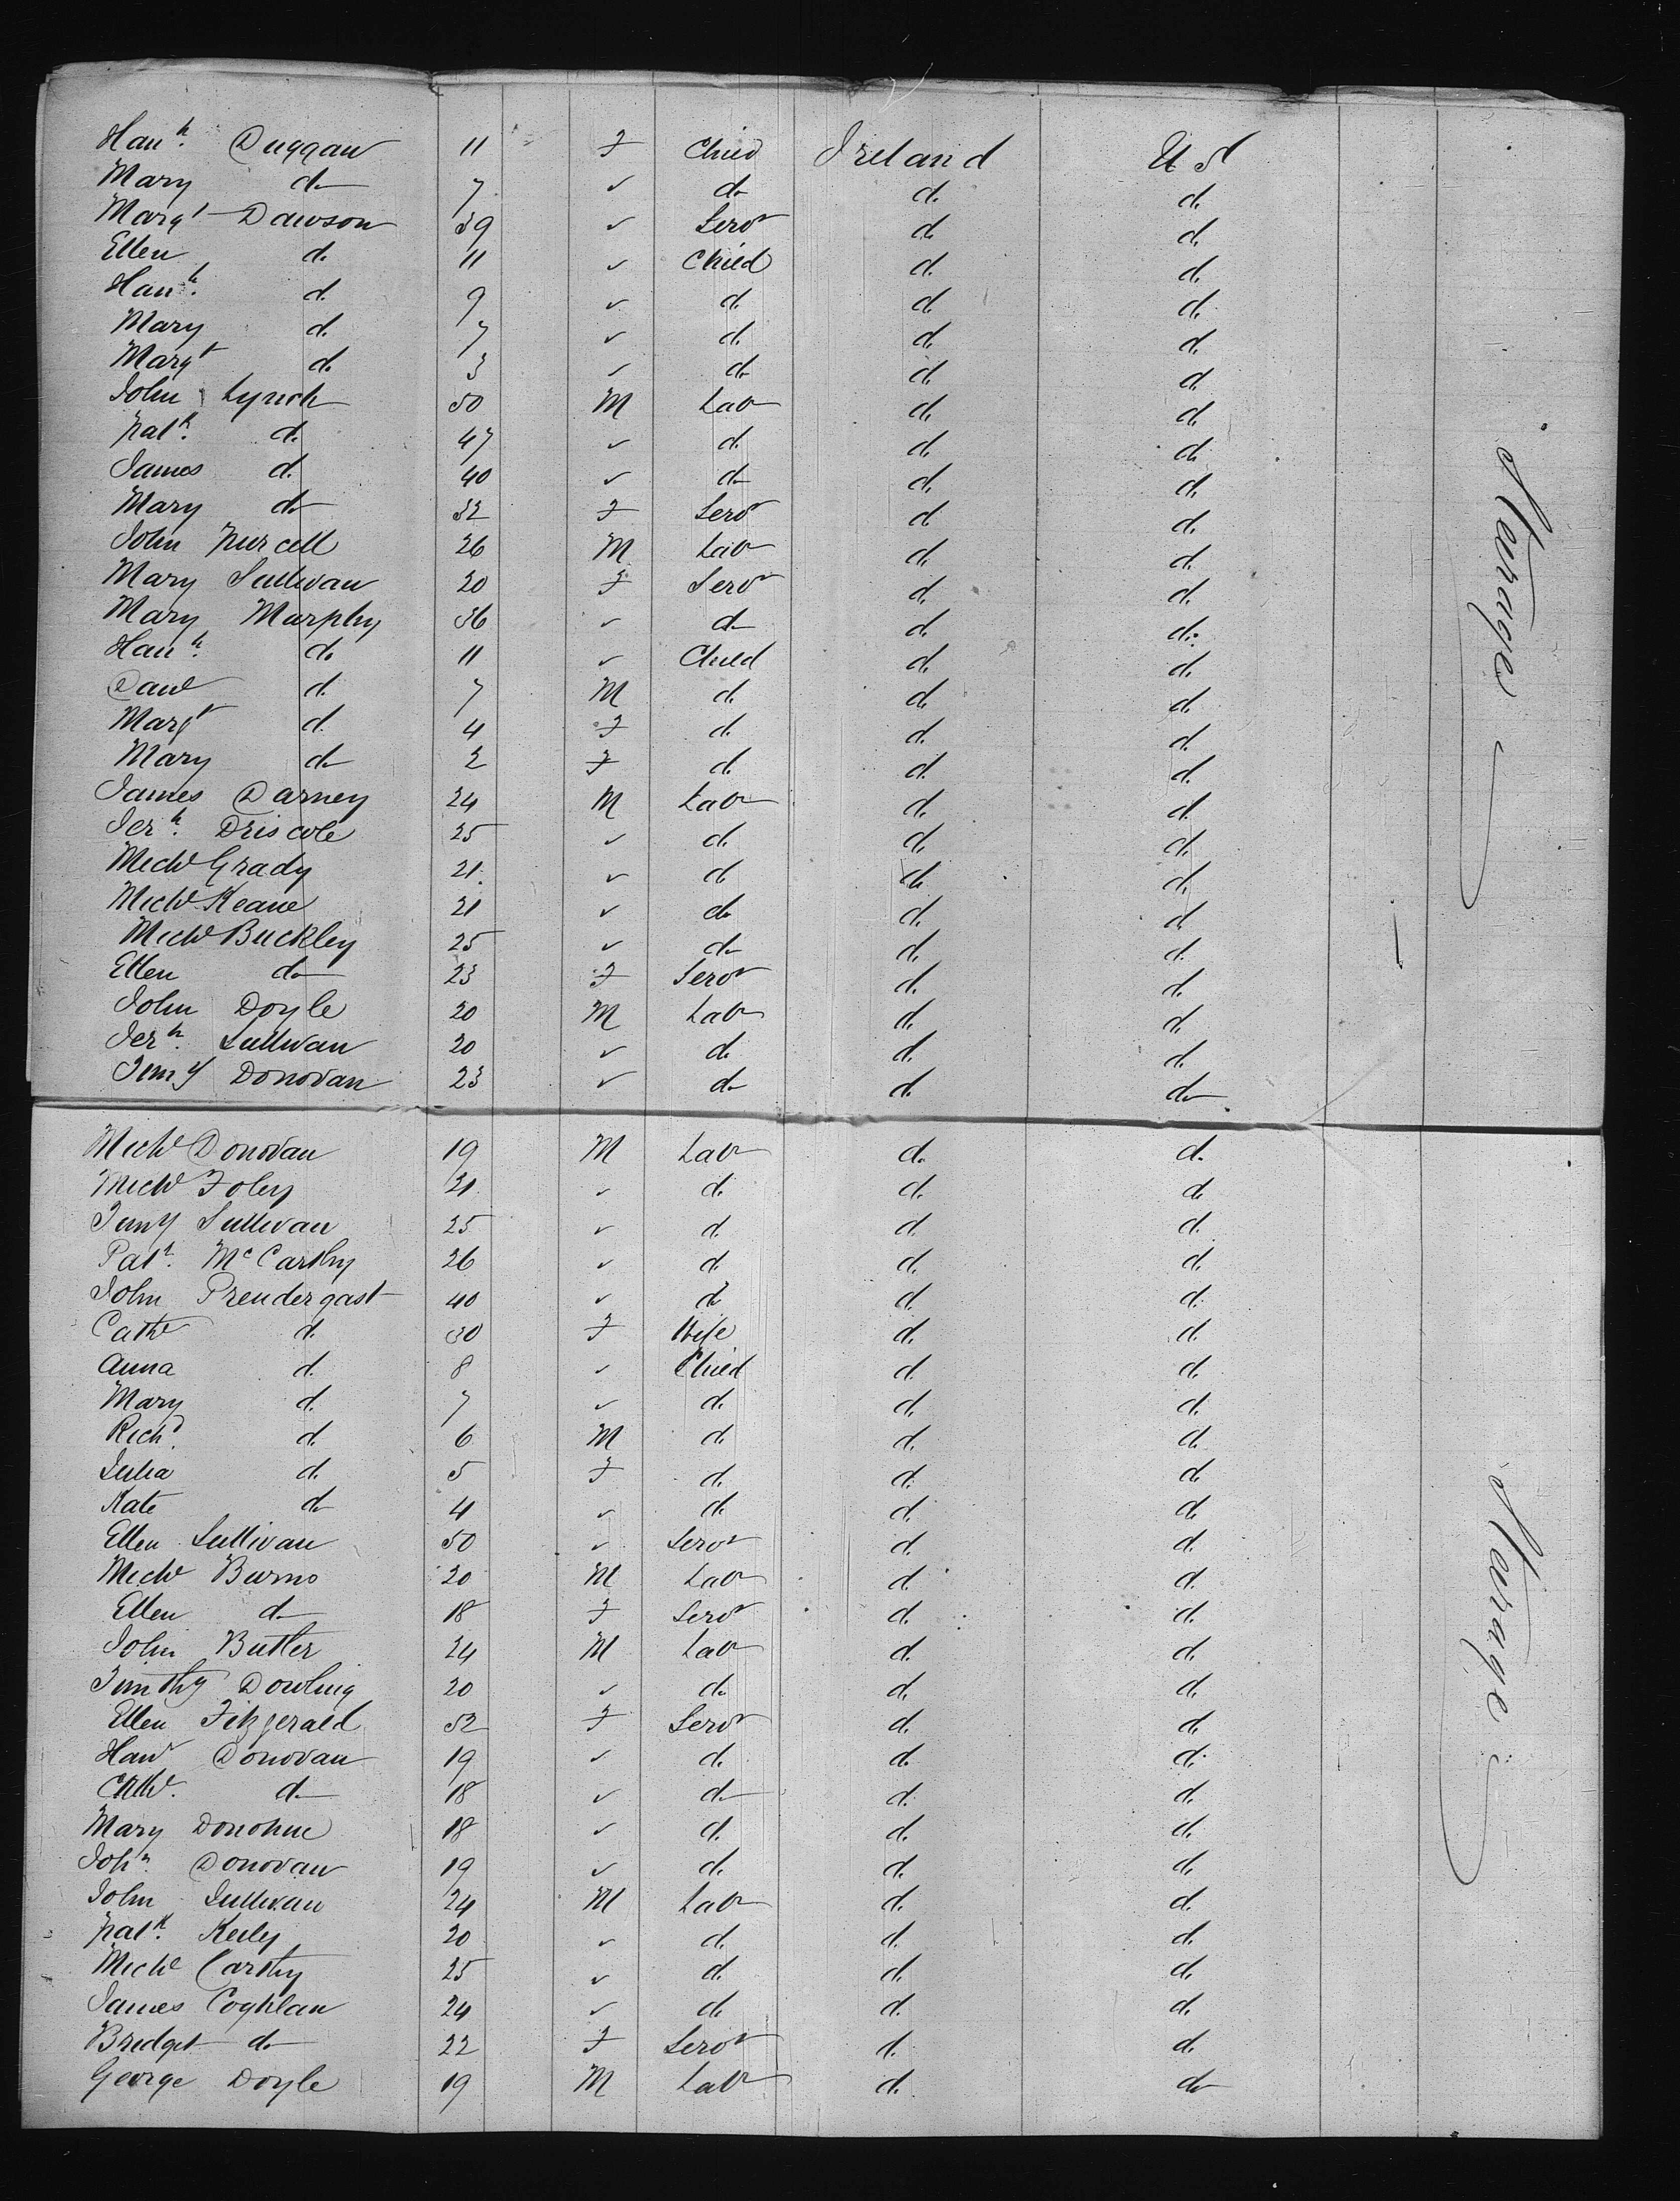 Hanh. Duggan 11 F Child Ireland U S
Mary do 7 " do do do
Margt Dawson 39 " Servt do do
Ellen do 11 " Child do do
Hanh. do 9 " do do do
Mary do 7 " do do do
Margt do 3 " do do do
John Lynch 50 M Labr do do
Patk. do 47 " do do do
James do 40 " do do do
Mary do 32 F Servt do do
John Purcell 26 M Labr do do
Mary Sullivan 20 F Servt do do
Mary Murphy 36 " do do do
Hanh. do 11 " Child do do
Danl do 7 M do do do
Margt do 4 F do do do
Mary do 2 F do do do
James Darney 24 M Labr do do
Jerh. Driscole 25 " do do do
Michl Grady 21 " do do do
Michl Keane 21 " do do do
Michl Buckley 25 " do do do
Ellen do 23 F Servt do do
John Doyle 20 M Labr do do
Jerh. Sullivan 20 " do do do
Timy Donovan 23 " do do do
Steerage
Michl Donovan 19 M Labr do do
Michl Foley 21 " do do do
Timy Sullivan 25 " do do do
Patk. McCarthy 26 " do do do
John Prendergast 40 " do do do
Cathe do 30 F Wife do do
Anna do 8 " Child do do
Mary do 7 " do do do
Richd. do 6 M do do do
Julia do 5 F do do do
Kate do 4 " do do do
Ellen Sullivan 50 " Servt do do
Michl Burns 20 M Labr do do
Ellen do 18 F Servt do do
John Butler 24 M Labr do do
Timothy Dowling 20 " do do do
Ellen Fitzgerald 52 F Servt do do
Hanh Donovan 19 " do do do
do 18 " do do do
Mary Donohue 18 " do do do
Joha. Donovan 19 " do do do
John Sullivan 24 M Labr do do
Patk. Keily 20 " do do do
Michl Carthy 25 " do do do
James Coghlan 24 " do do do
Bridget do 22 F Servt do do
George Doyle 19 M Labr do do
Steerage